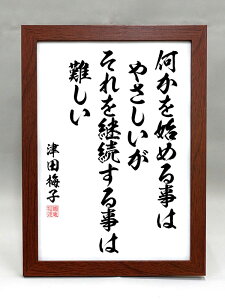 何かを始める事は
やさしいが
それを継続する事は
難しい
津田梅子